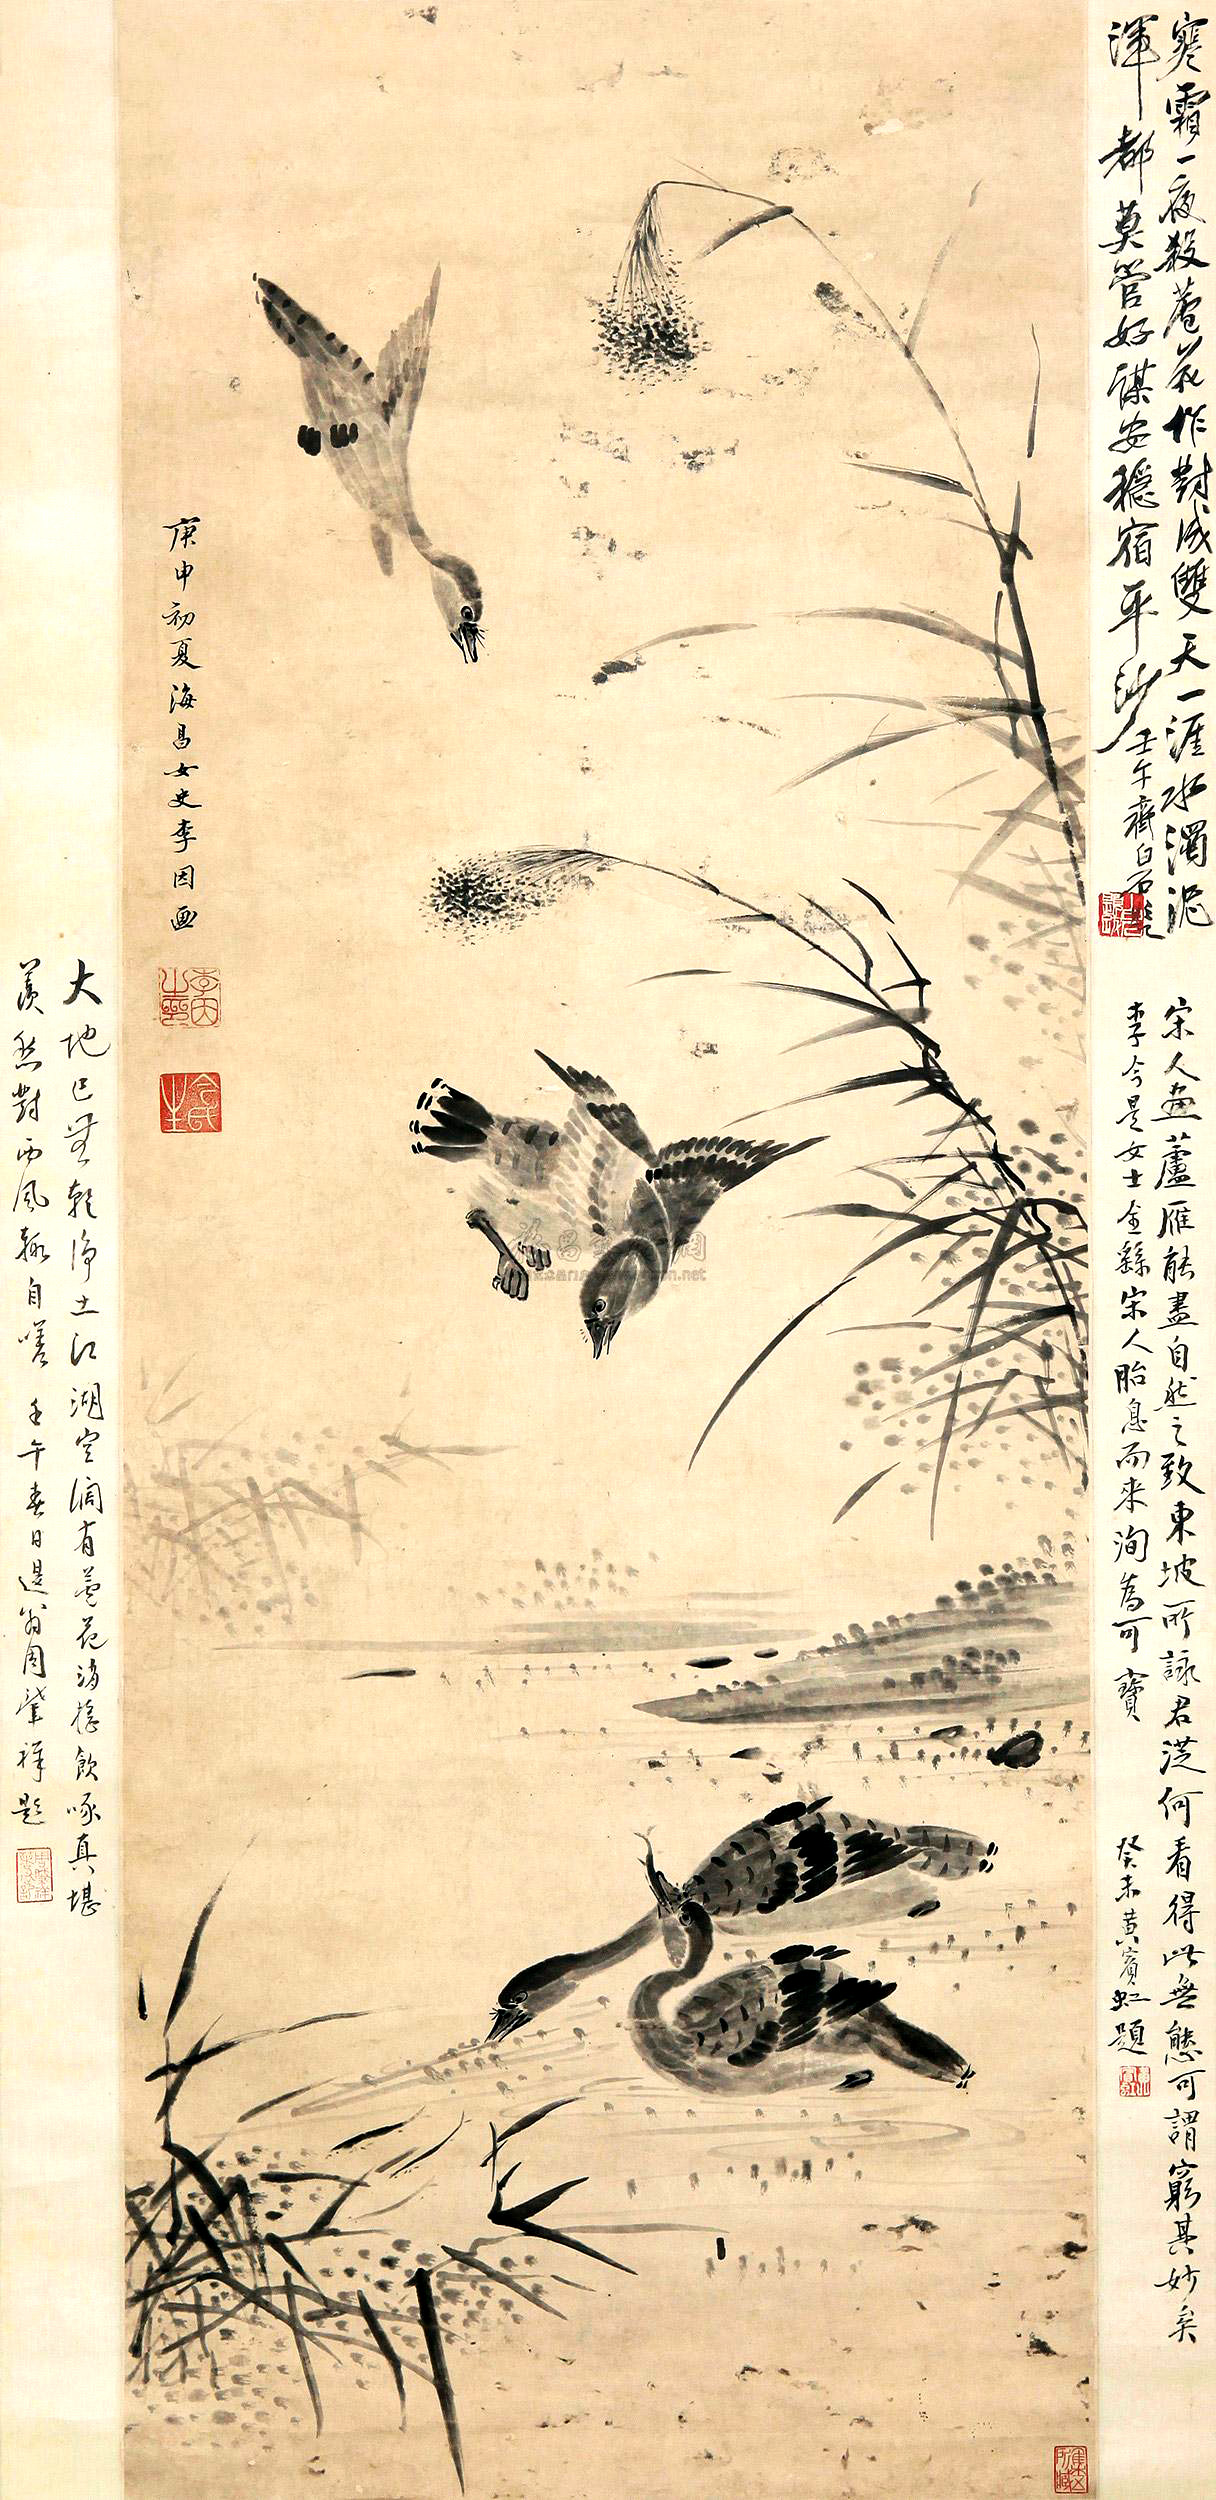 寒霜一夜殺蘆花作對成雙天一涯水濁泥
渾都莫管好謀安穩宿平沙
壬午齊白石題
宋人畫蘆雁能盡自然之致東坡所詠君從何看得此無態可謂窮其妙矣
李今是女士全繇宋人胎息而來洵為可寶
癸未黃賓虹題
庚申初夏海昌女史李因画
大地已無乾淨土江湖空闊有蘆花消搖飲啄真堪
羨愁對西風輒自嗟
壬午春日退翁周肇祥題
李因之印
今是氏